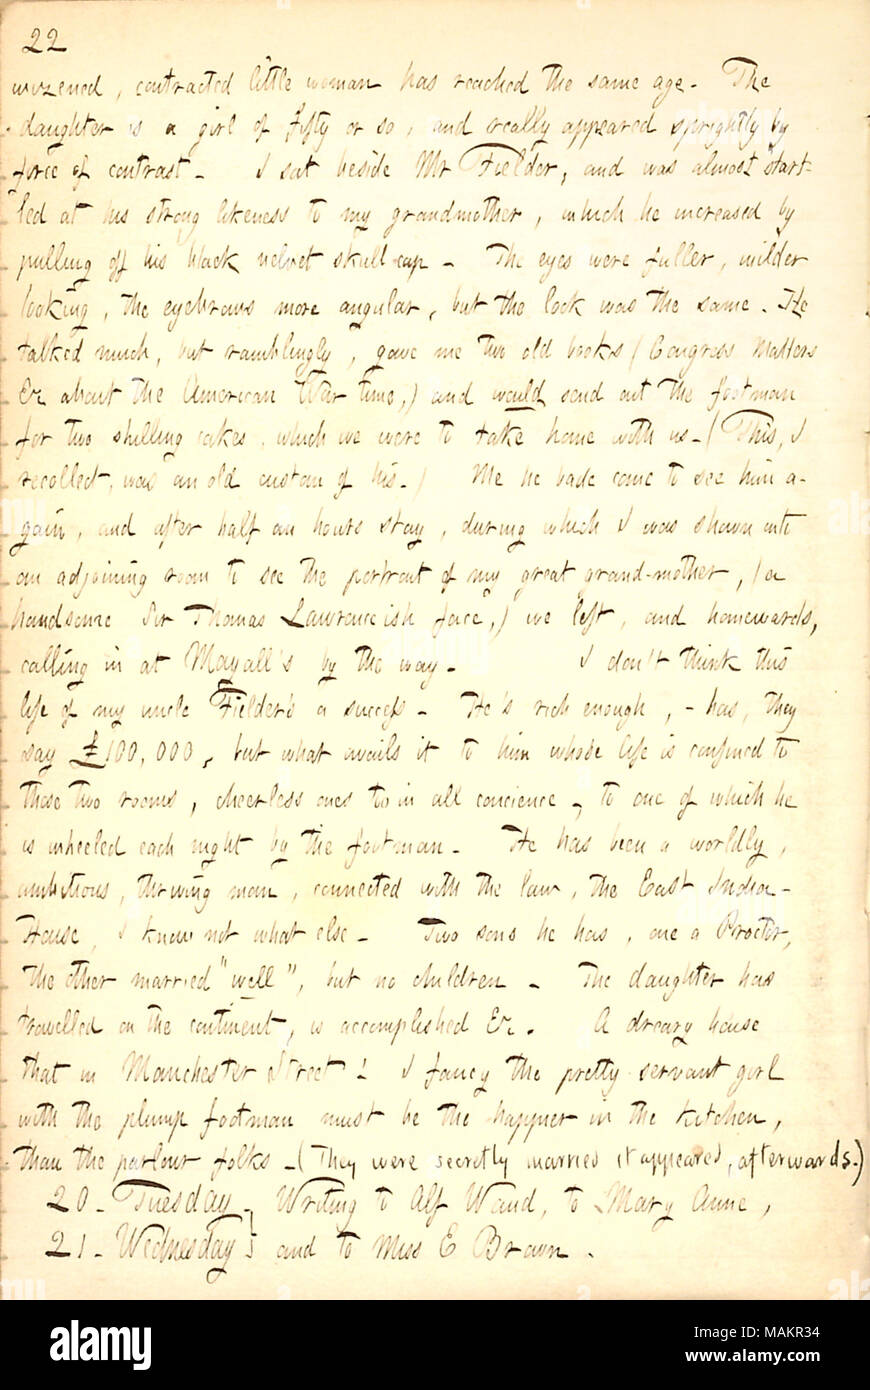 22
wizened, contracted little woman has reached the same age. The
daughter is a girl of fifty or so, and really appeared sprightly by
force of contrast. I sat beside Mr Fielder, and was almost start-
led at his strong likeness to my grandmother, which he increased by
pulling off his black velvet skull-cap. The eyes were fuller, milder
looking, the eyebrows more angular, but the look was the same. He
talked much, but ramblingly, gave me two old books (Congress Matters
&c about the American War time,) and would send out the footman
for two shilling cakes, which we were to take home with us. (This, I
recollect, was an old custom of his.) Me he bade come to see him a-
gain, and after half an hours stay, during which I was shown into
an adjoining room to see the portrait of my great grand-mother, (a
handsome Sir Thomas Lawrence ish face,) we left, and homewards,
calling in at Mayall's by the way. I don't think this
life of my uncle Fielder's a success. He's rich enough, - has, they
say £100,000, but what avails it to him whose life is confined to
those two rooms, cheerless ones to in all concience, to one of which he
is wheeled each night by the footman. He has been a worldly,
ambitious, thriving man, connected with the law, the East India-
House, I know not what else. Two sons he has, one a Proctor,
the other married "well", but no children. The daughter has
travelled on the continent, is accomplished &c. A dreary house
that in Manchester Street! I fancy the pretty servant girl
with the plump footman must be the happier in the kitchen,
than the parlour folks. (They were secretly married it appeared, afterwards.)
20. Tuesday. } Writing to Alf Waud, to Mary Anne,
21. Wednesday } and to Miss E Brown.
alamy
Image ID: MAKR34
www.alamy.com